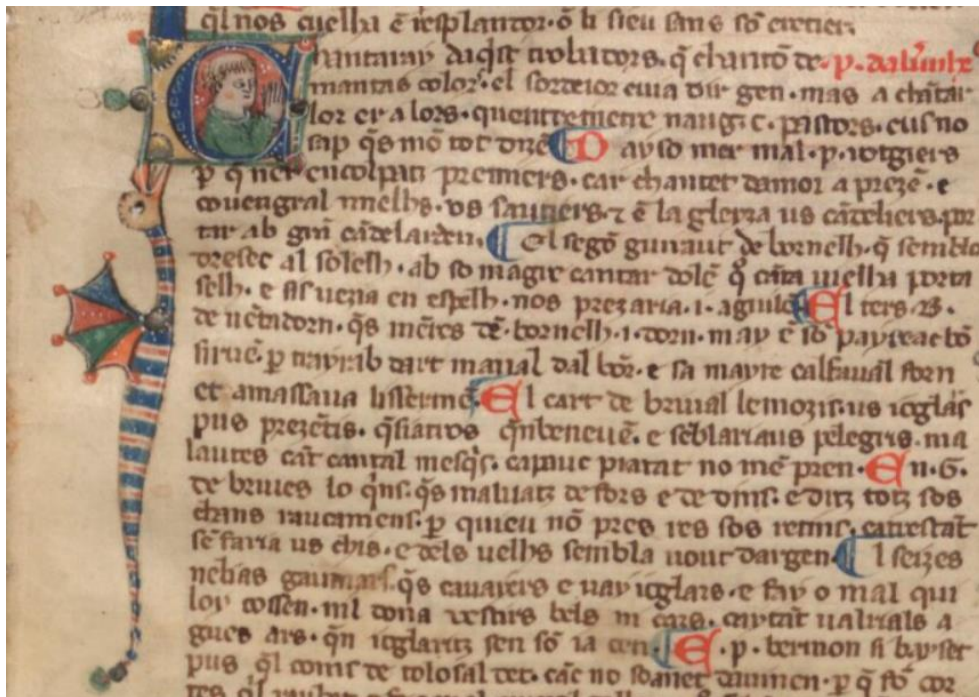 q̃l nos cuelhi ē resplandor. ō li sieu sans sō
hantaray daq̃st trobadors. q̃ chantō de. p. daluernhe
mantas color. el sordeior cuia dir gen. mas a chātar
lor er alhors. quentremetre naug .c. pastors. cus no
sap q̃s mō tot dixē D ayso mer mal. p. rotgiers
p q̃ ner encolpatz premiers. car chantet damor a prezē. e
couengral mielhs. us sautiers. ⁊ ē la glieyza us cādeliers. por
tar ab grā cādelarden. El segō giraut de bornelh. q̃ sembla
oresec al solelh. ab so magre cantar dolē q̃ cāta uielha porta
selh. e sis uezia en espelh. nos prezaria .i. aguilē El ters. B.
de uētadorn. q̃s mēres de bornelh .i. dorn. may ē sō payreac bō
siruē. p trayrab dart manal dalbor. e sa mayre calfaual forn
et amassaua lissermē. El cart de briual lemozis. us ioglas
pus prezētis. q̃siatros q̃nbeneuē. e sēblariaus pelegris. ma
lautes cāt cantal mesq̃s. capauc piatat no mē pren. En .G.
de briues lo q̃ns. q̃s maluatz defors e dedins. e ditz totz sos
chans raucamens. p quieu nō pres res sos retins. catrestāt
sē faria us chis. e dels uelhs sembla uout dargen El seizes
nebias gaumars. q̃s cauaiers e uay ioglars. e fay o mal qui
loy cossen. nil dona vestirs bels ni cars. captāt ualrials a
gues ars. q̃n ioglaritz sen sō ia cen. E .p. bermon si bayset
pus q̃l coms de tolozal det. cāc no sonet dauinen. p q̃ fō cor